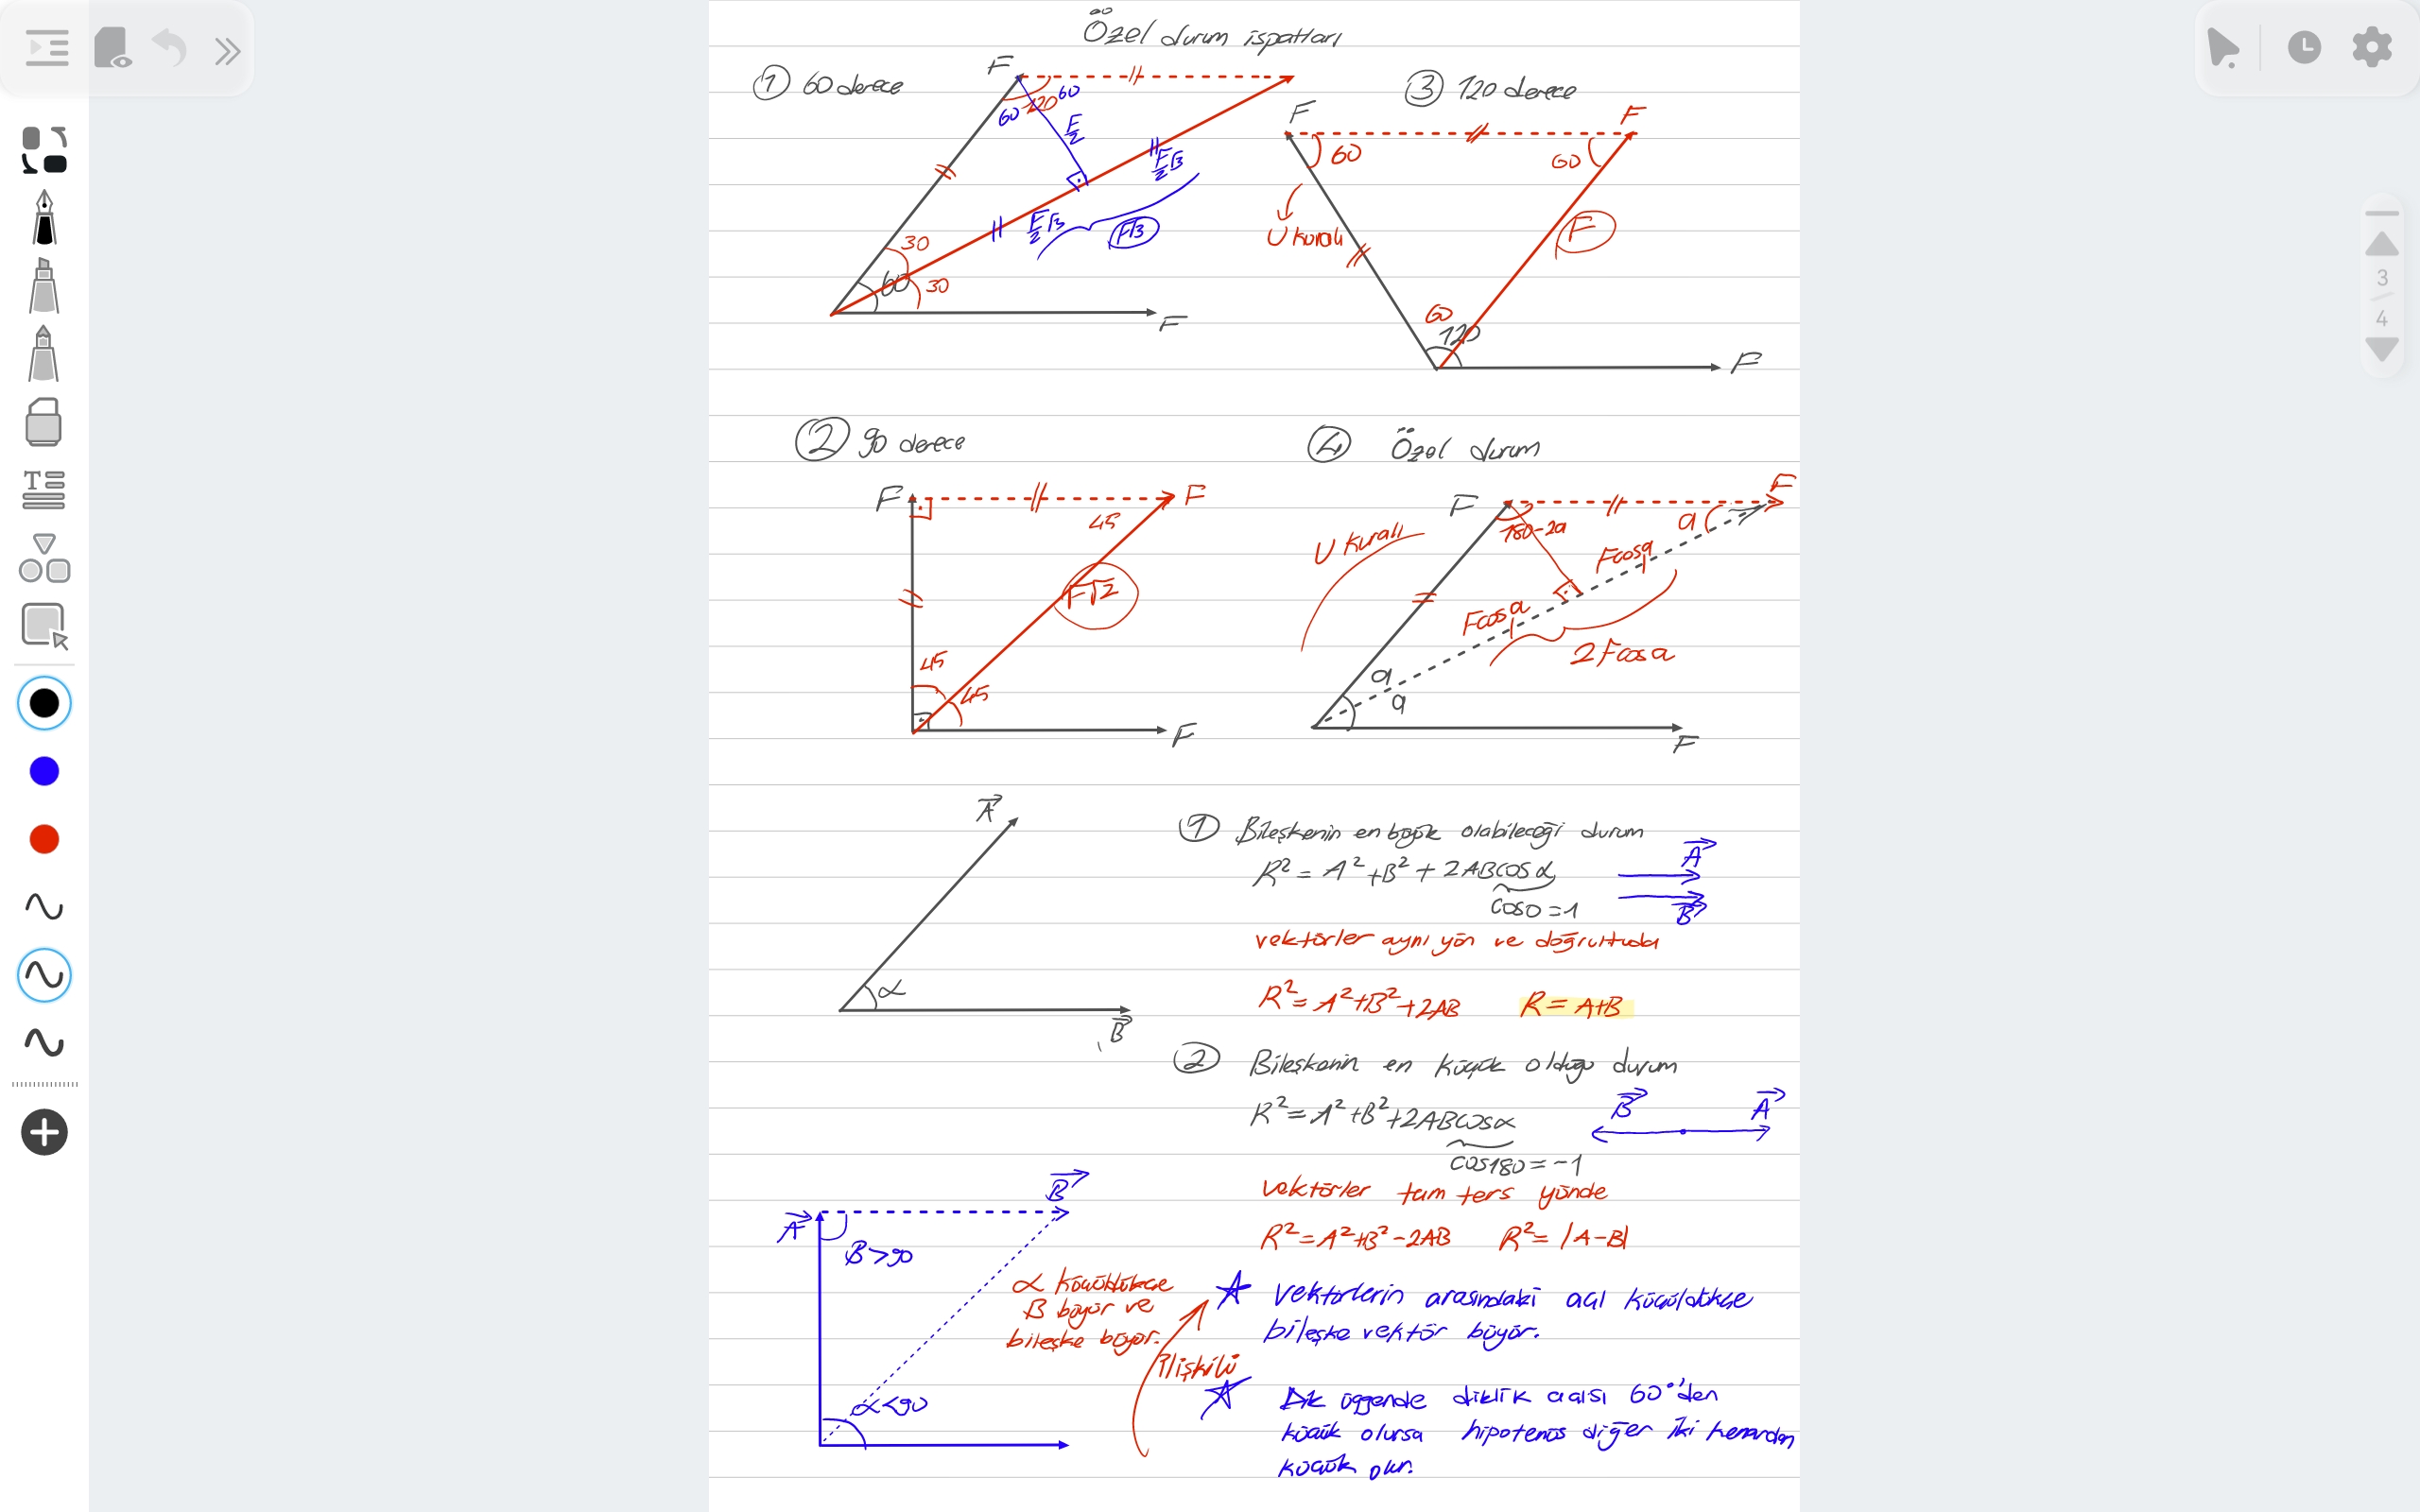 Özel durum ispatları
① 60 derece
F
120
60
60
F/2
F/2√3
F/2√3
F√3
30
60
30
F
③ 120 derece
F
F
60
60
U kuralı
F
60
120
F
② 90 derece
F
F
45
F√2
45
45
F
④ Özel durum
F
F
180-2a
a
U kuralı
Fcosa
Fcosa
2Fcosa
a
a
F
A
α
B
① Bileşkenin en büyük olabileceği durum
R² = A² + B² + 2ABcosα
cos0 = 1
A
B
vektörler aynı yön ve doğrultuda
R² = A² + B² + 2AB R = A+B
② Bileşkenin en küçük olduğu durum
R² = A² + B² + 2ABcosα
cos180 = -1
B A
vektörler tam ters yönde
R² = A² + B² - 2AB R² = |A-B|
A
B
B > 90
α < 90
α küçüldükçe
B büyür ve
bileşke büyür.
ilişkilü
Vektörlerin arasındaki açı küçüldükçe
bileşke vektör büyür.
Dik üçgende diklik açısı 60°'den
küçük olursa hipotenüs diğer iki kenardan
küçük olur.
3
4
T